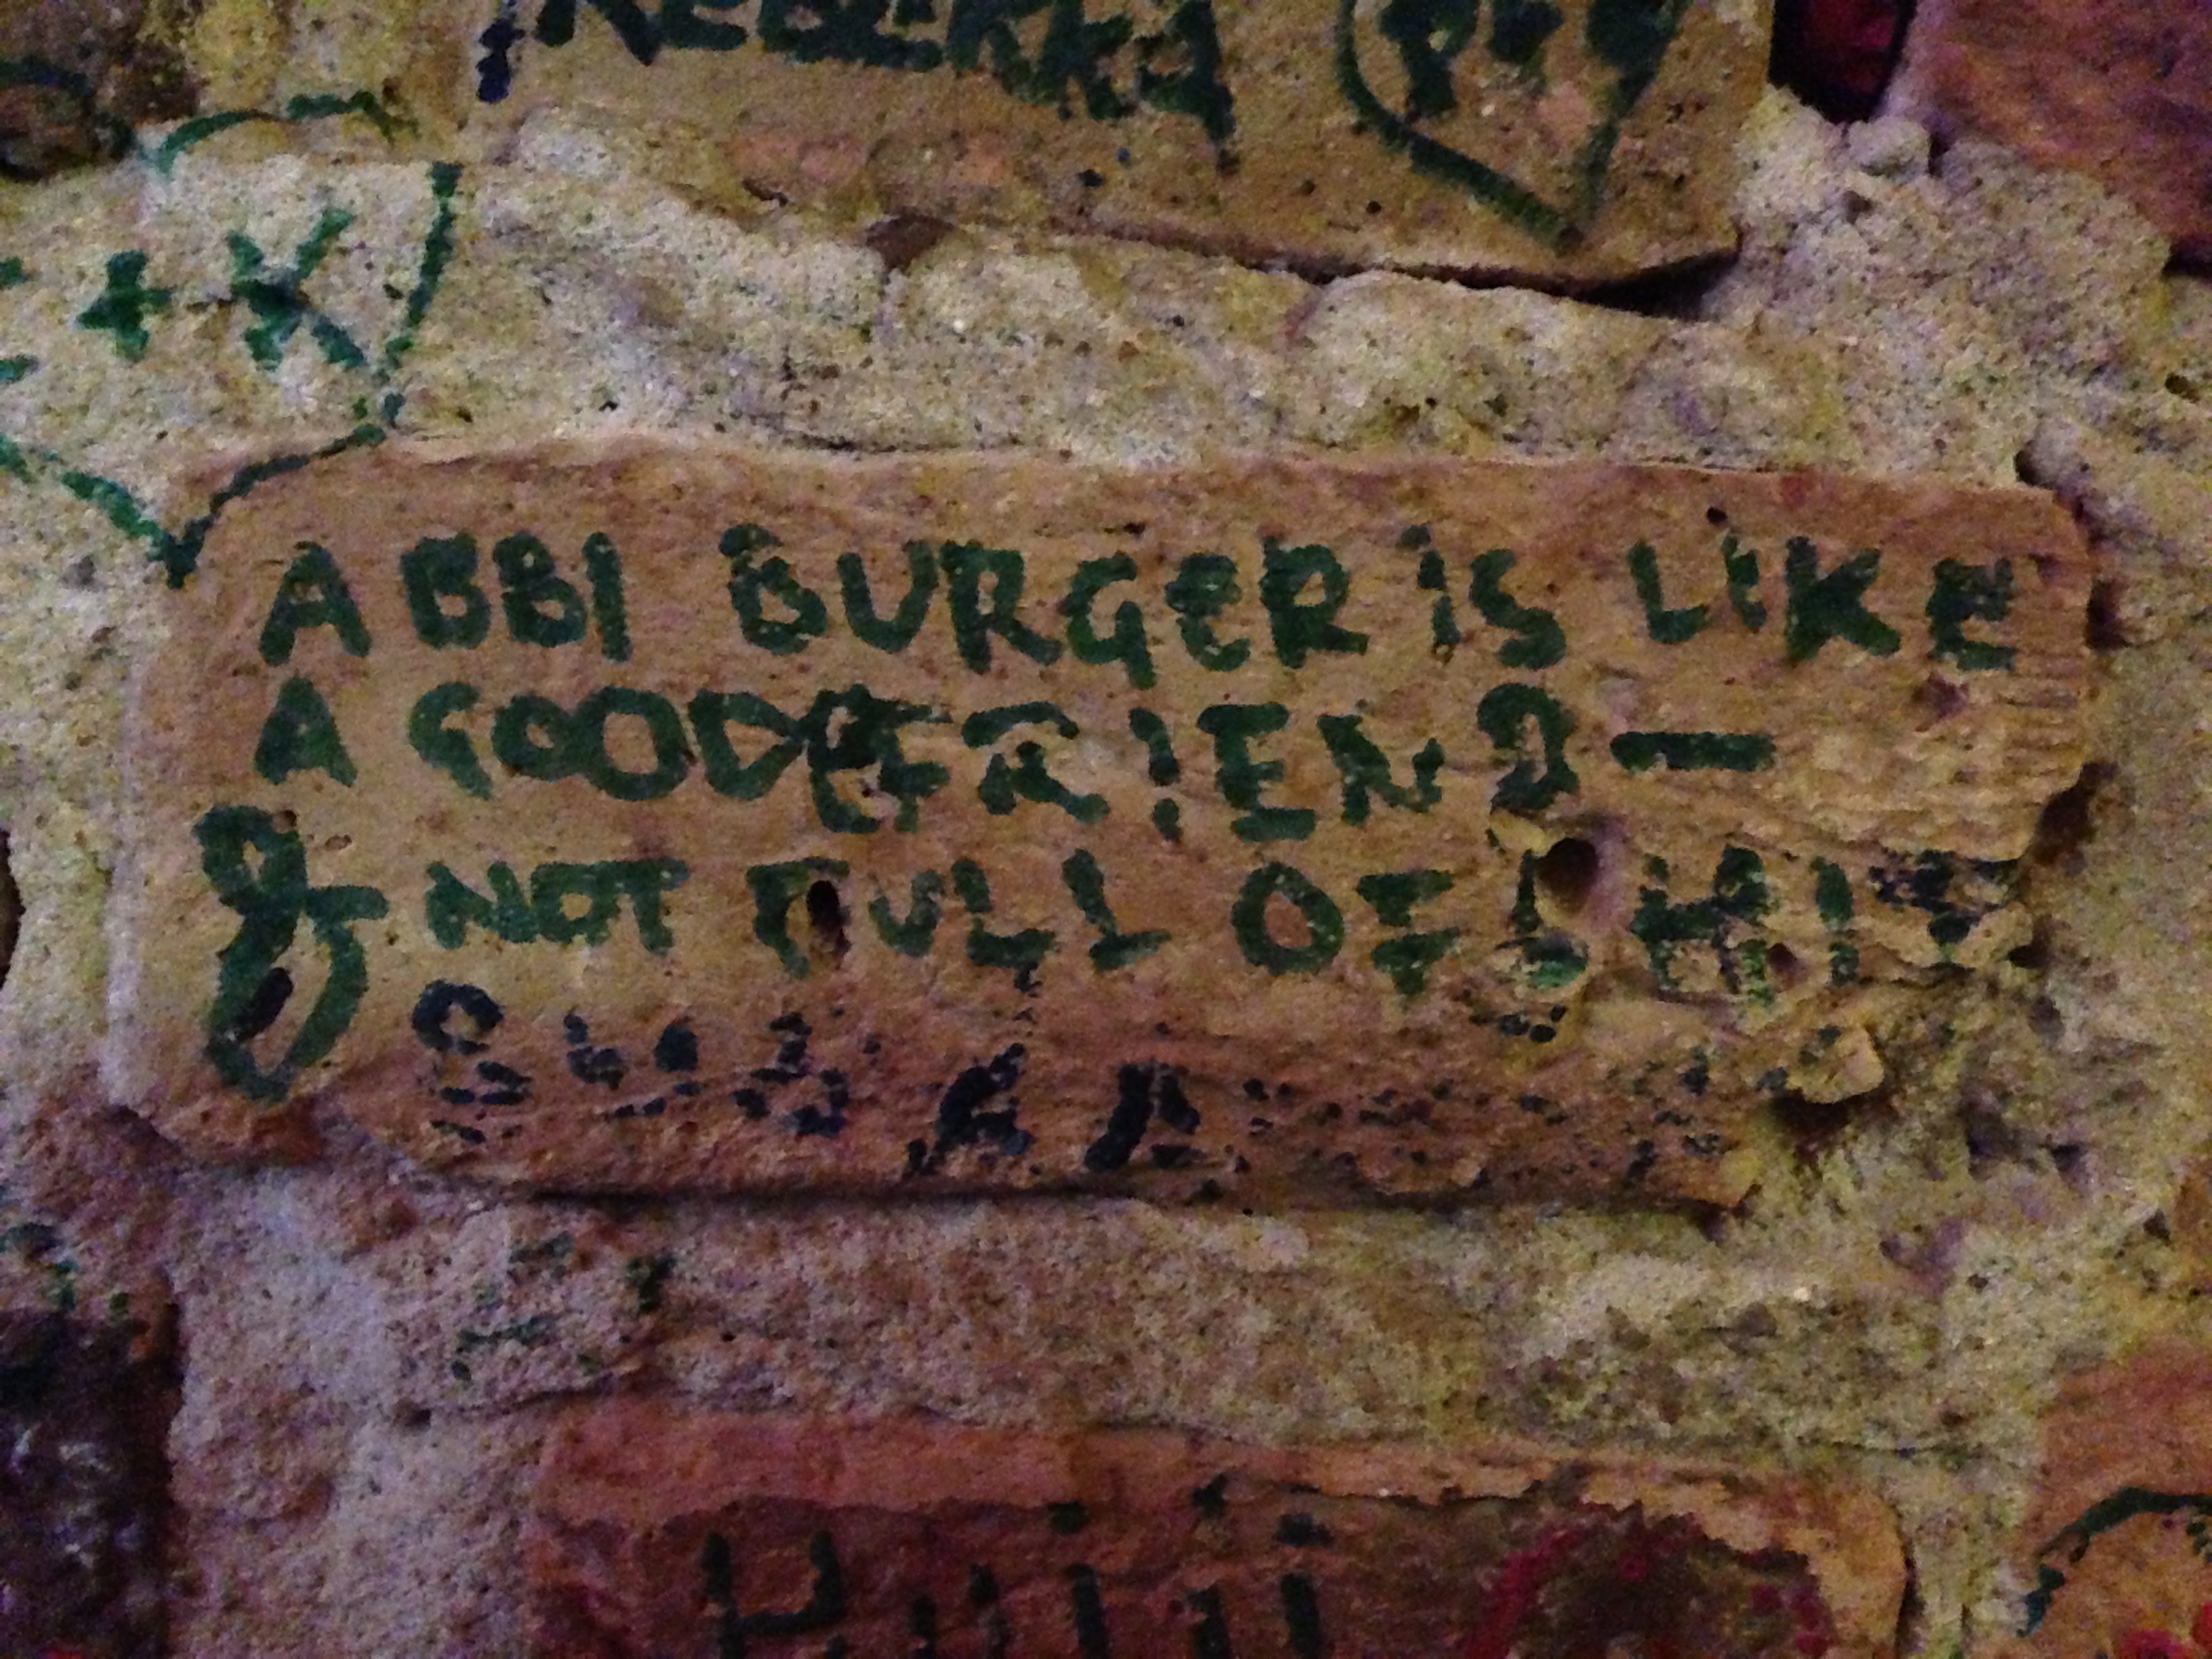 REBEKKA
+K
ABBI BURGER IS LIKE
A GOOD FRIEND —
& NOT FULL OF SHIT